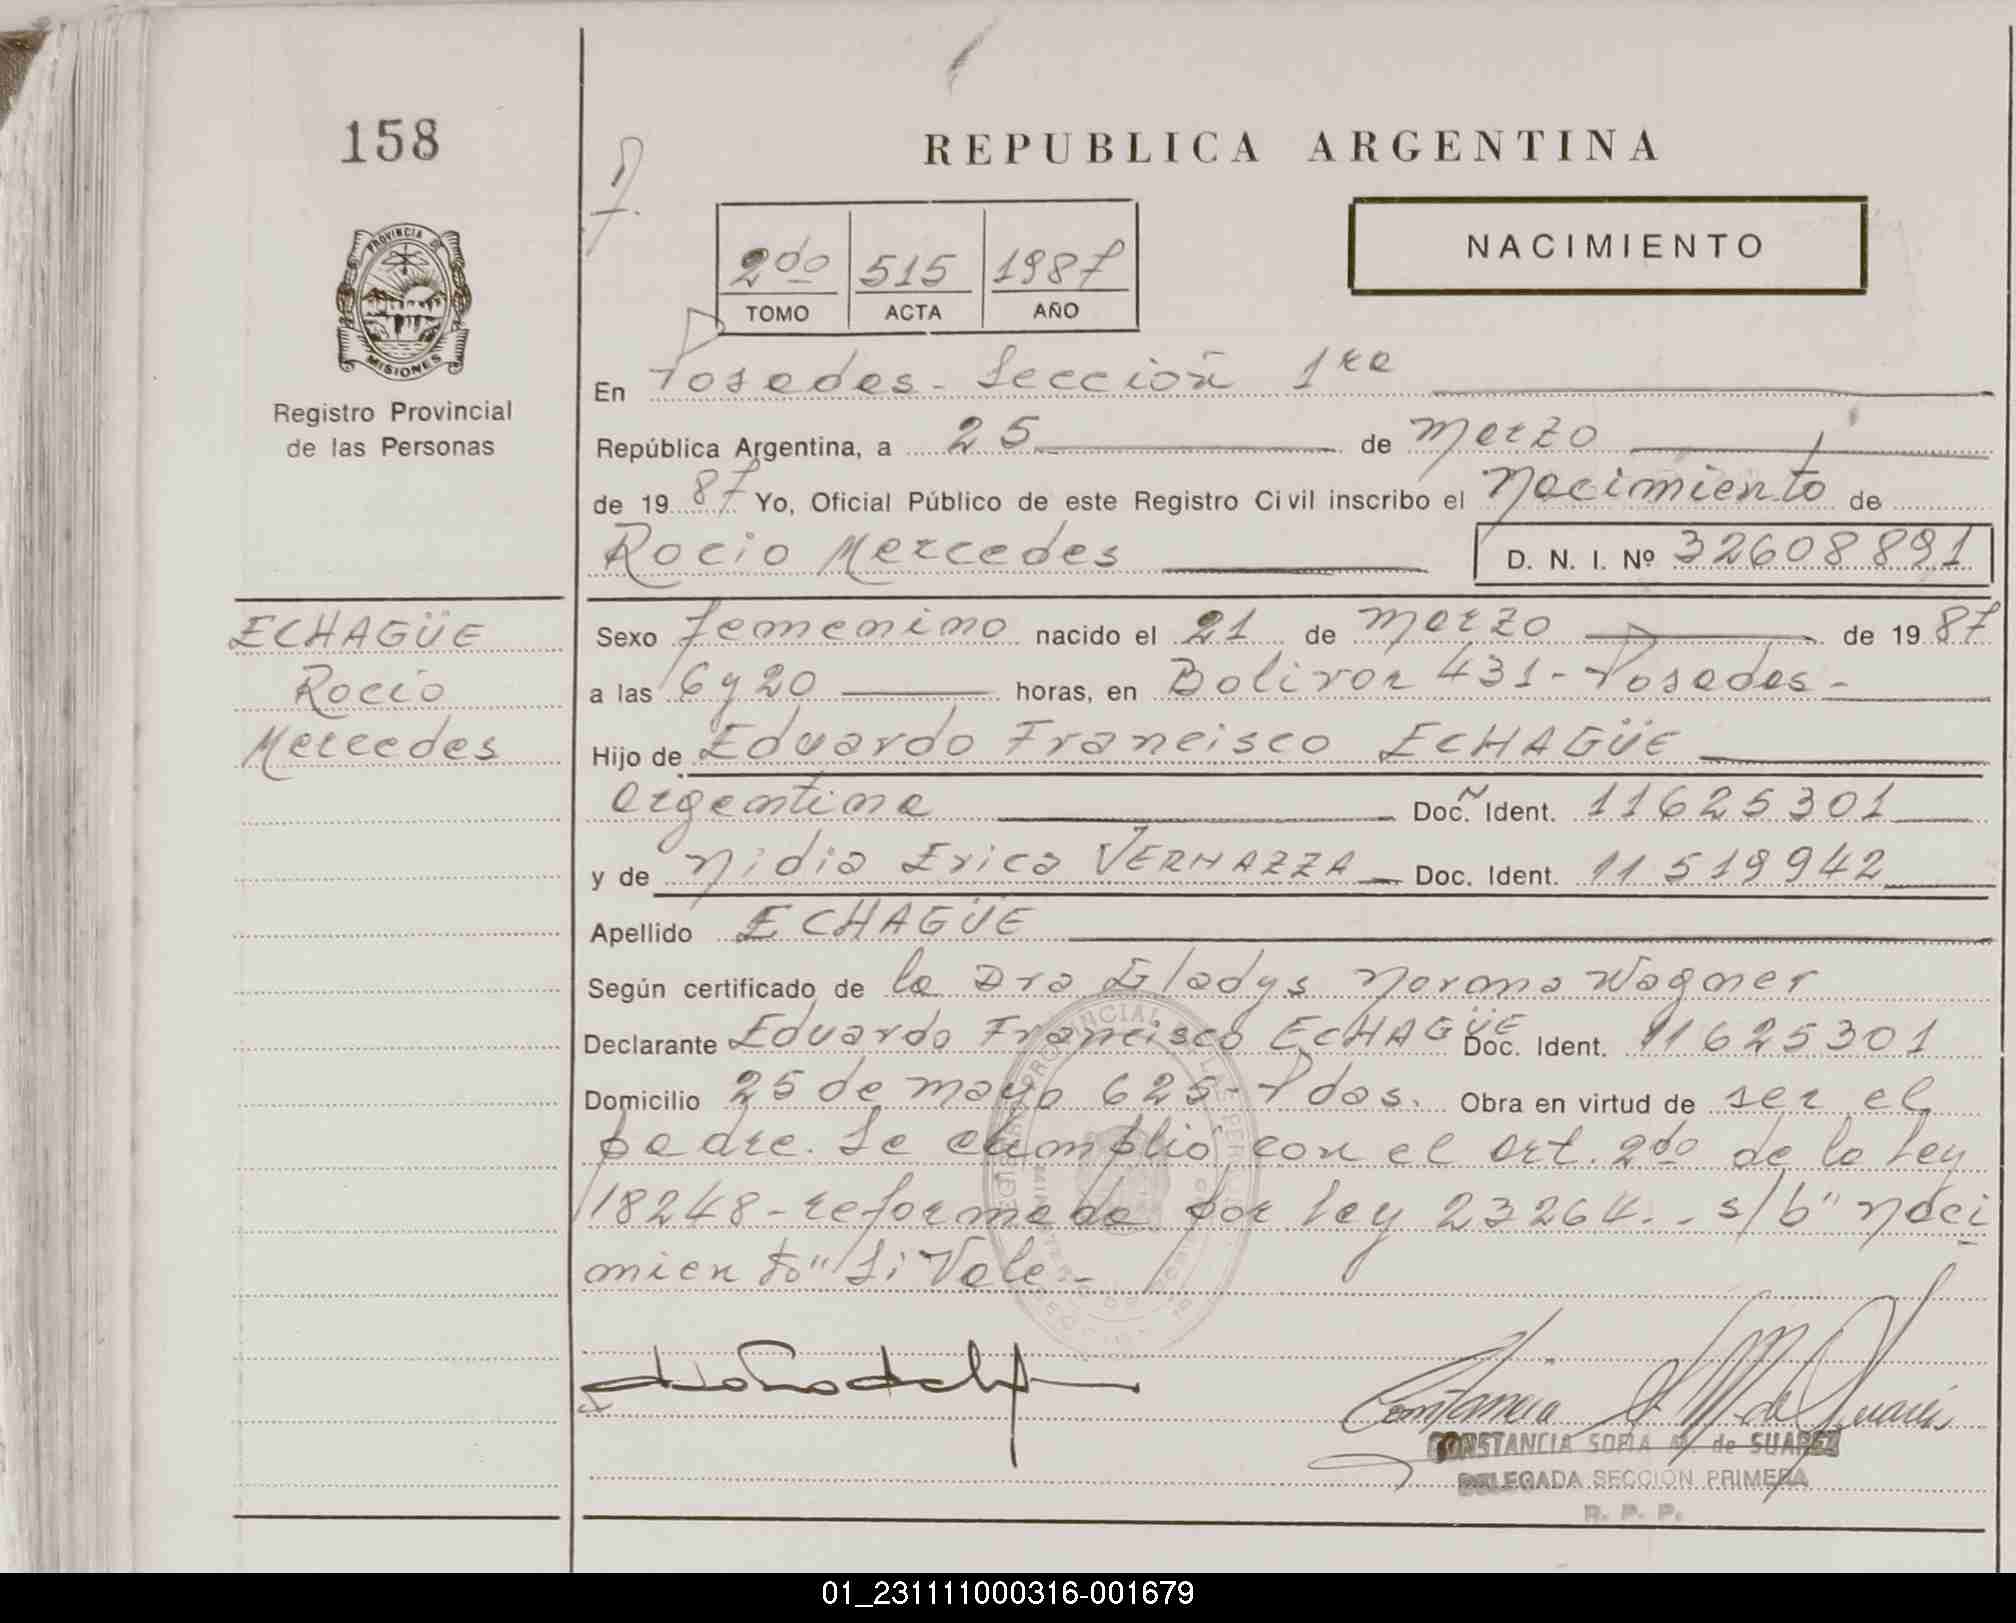 158
REPUBLICA ARGENTINA
NACIMIENTO
2do 515 1987
TOMO ACTA AÑO
PROVINCIA DE
MISIONES
Registro Provincial
de las Personas
En Posadas - Sección 1ra
República Argentina, a 25 de Marzo
de 19 87 Yo, Oficial Público de este Registro Civil inscribo el Nacimiento de
Rocio Mercedes D. N. I. Nº 32608891
ECHAGÜE
Rocio
Mercedes
Sexo femenino nacido el 21 de Marzo de 19 87
a las 6 y 20 horas, en Bolivar 431 - Posadas -
Hijo de Eduardo Francisco ECHAGÜE
argentina Doc. Ident. 11625301
y de Nidia Erica VERNAZZA Doc. Ident. 11519942
Apellido ECHAGÜE
Según certificado de la Dra Gladys Norma Wagner
Declarante Eduardo Francisco ECHAGÜE Doc. Ident. 11625301
Domicilio 25 de mayo 625 - Pdas. Obra en virtud de ser el
padre. Se cumplió con el art. 2do de la ley
18248 - reformada por ley 23264. - s/b "Naci
miento" Si Vale -
CONSTANCIA SOFIA M. de SUAREZ
DELEGADA SECCION PRIMERA
R. P. P.
01_231111000316-001679